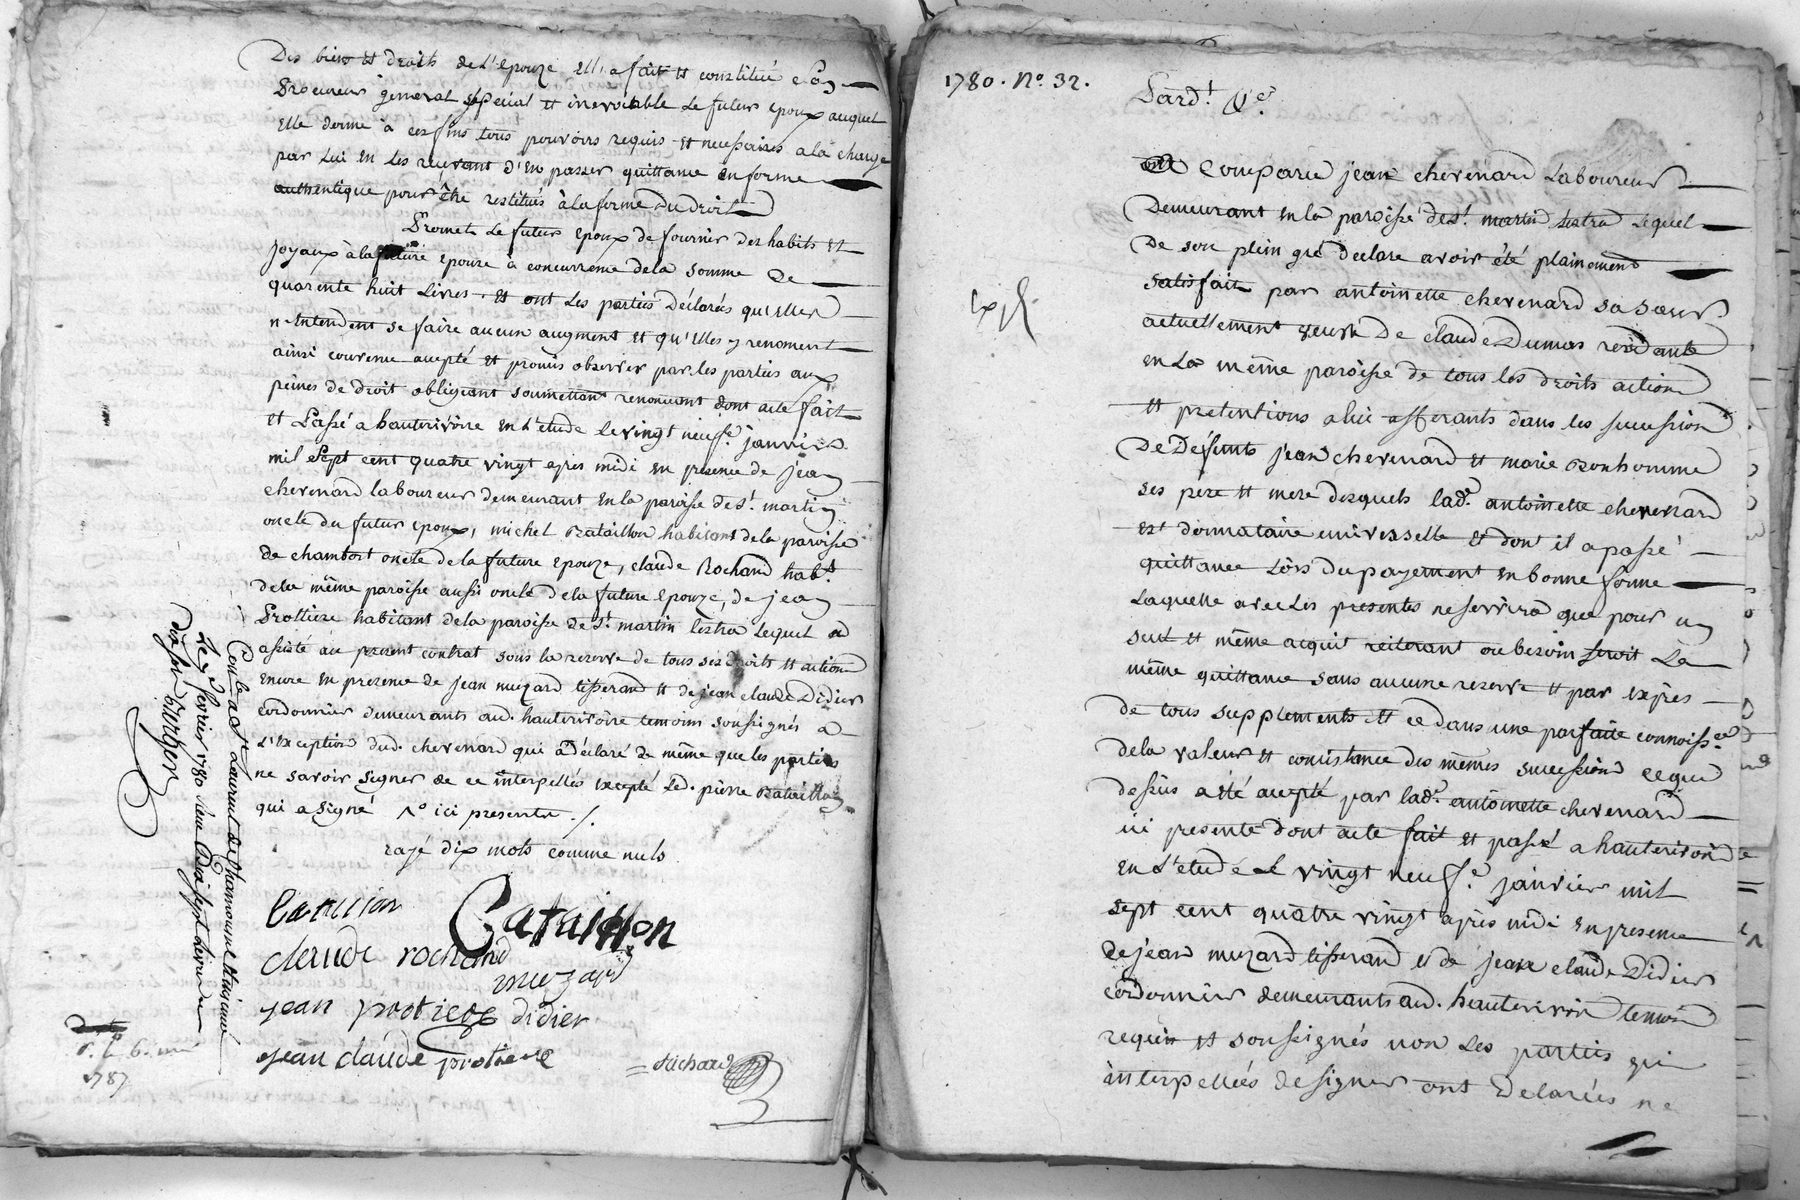 Des biens et droits de L'Epouze Elle a fait et constitué son
Procureur général spécial et irrevocable Le futur Epoux auquel
Elle donne à ces fins tous pouvoirs requis et necessaires a la charge
par Lui en Les recevant d'en passer quittance en forme
authentique pour Etre restitués à la forme du droit
Promet Le futur Epoux de fournir des habits et
joyaux à la future Epouze à concurrence de la somme De
quarente huit Livres. Et ont Les parties Déclarés qu'elles
n'Entendent se faire aucun augment Et qu'Elles y renoncent
ainsi convenu accepté Et promis observer par les parties aux
peines de droit obligeant soumettant renonceant dont acte fait
et Passé a hauterivoire En L'étude Le vingt neuf.e janvier
mil Sept cent quatre vingt après midi En presence de jean
chevenard laboureur demeurant En la paroisse de s.t martin
oncle du futur epoux, michel Bataillon habitant de la paroisse
de chambost oncle de la future Epouze, claude Rochand hab.t
de la même paroisse aussi oncle de la future Epouze, de jean
Prottiere habitant de la paroisse de S.t martin lestra Lequel a
assisté au present contrat sous la reserve de tous ses droits et action
Encore En presence de jean muzard tisserand Et de jean claude Didier
cordonnier demeurants aud. hauterivoire temoins soussignés a
L'Exception dud. chevenard qui a déclaré de même que les parties
ne savoir signer de ce interpellés Excepté Led. pierre Bataillon
qui a signé ici presente ./.
rayé dix mots comme nuls
Bataillon
claude rochand
muzard
jean protiere didier
jean claude protiere
Richard
Le 7 fevrier 1780
dix sols
1787
1780. N.o 32.
Pard.t &.e
Comparu jean chevenard Laboureur
Demeurant En la paroisse de S.t martin Lestra Lequel
De son plein gré declare avoir été plainement
satisfait par antoinette chevenard sa sœur
actuellement veuve De claude Dumas residante
en La même paroisse de tous les droits action
et pretentions a lui afferants dans les succession
De Défunts jean chevenard et marie Bonhomme
ses père et mere desquels lad.e antoinette chevenard
est donnataire universelle Et dont il a passé
quittance Lors du payement En bonne forme
Laquelle avec Les presentes ne servira que pour un
seul et même acquit reiterant ou besoin seroit La
même quittance sans aucune reserve et par Exprès
de tous supplements Et ce dans une parfaite connoiss.ce
de la valeur et consistance des mêmes succession ce que
dessus a été accepté par lad.e antoinette chevenard
ici presente dont acte fait Et passé a hauterivoire
En L'étude Le vingt neuf.e janvier mil
sept cent quatre vingt après midi En presence
de jean muzard tisserand et de jean claude Didier
cordonnier demeurants aud. hauterivoire temoin
requis et soussignés non Les parties qui
interpellées de signer ont Declarées ne